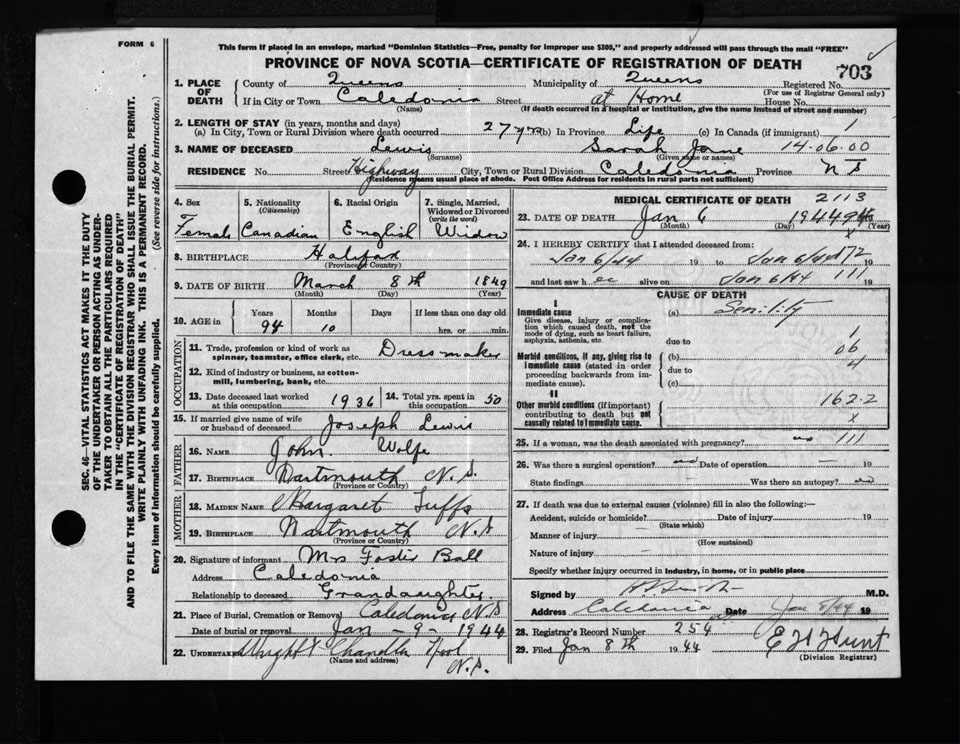 FORM 6
This form if placed in an envelope, marked "Dominion Statistics—Free, penalty for improper use $300," and properly addressed will pass through the mail "FREE"
PROVINCE OF NOVA SCOTIA—CERTIFICATE OF REGISTRATION OF DEATH
703
1. PLACE OF DEATH County of Queens Municipality of Queens Registered No.
(For use of Registrar General only)
If in City or Town Caledonia Street at Home House No.
(Name) (If death occurred in a hospital or institution, give the name instead of street and number)
2. LENGTH OF STAY (in years, months and days)
(a) In City, Town or Rural Division where death occurred 27 yrs (b) In Province Life (c) In Canada (if immigrant) 1
3. NAME OF DECEASED Lewis Sarah Jane 14-06-00
(Surname) (Given name or names)
RESIDENCE No. Street Highway City, Town or Rural Division Caledonia Province N S
(Residence means usual place of abode. Post Office Address for residents in rural parts not sufficient)
4. Sex Female
5. Nationality (Citizenship) Canadian
6. Racial Origin English
7. Single, Married, Widowed or Divorced (write the word) Widow
8. BIRTHPLACE Halifax
(Province or Country)
9. DATE OF BIRTH March 8th 1849
(Month) (Day) (Year)
10. AGE in Years Months Days If less than one day old
94 10 hrs. or min.
OCCUPATION
11. Trade, profession or kind of work as spinner, teamster, office clerk, etc. Dressmaker
12. Kind of industry or business, as cotton-mill, lumbering, bank, etc.
13. Date deceased last worked at this occupation 1936
14. Total yrs. spent in this occupation 50
15. If married give name of wife or husband of deceased Joseph Lewis
FATHER
16. NAME John Wolfe
17. BIRTHPLACE Dartmouth N.S.
(Province or Country)
MOTHER
18. MAIDEN NAME Margaret Tuffs
19. BIRTHPLACE Dartmouth N.S.
(Province or Country)
20. Signature of informant Mrs Foster Ball
Address Caledonia
Relationship to deceased Grandaughter
21. Place of Burial, Cremation or Removal Caledonia N.S
Date of burial or removal Jan - 9 - 1944
22. UNDERTAKER Wright Chandler
(Name and address) N.S.
MEDICAL CERTIFICATE OF DEATH 2113
23. DATE OF DEATH Jan 6 1944
(Month) (Day) (Year)
24. I HEREBY CERTIFY that I attended deceased from:
Jan 6/44 19 to Jan 6/44 19
and last saw h er alive on Jan 6/44 19
CAUSE OF DEATH
I
Immediate cause (a) Senility
Give disease, injury or complication which caused death, not the mode of dying, such as heart failure, asphyxia, asthenia, etc
due to 1
Morbid conditions, if any, giving rise to immediate cause (stated in order proceeding backwards from immediate cause). (b) 06
due to 4
(c)
II
Other morbid conditions (if important) contributing to death but not causally related to immediate cause. 162.2
25. If a woman, was the death associated with pregnancy? no 111
26. Was there a surgical operation? no Date of operation — 19
State findings Was there an autopsy? no
27. If death was due to external causes (violence) fill in also the following:—
Accident, suicide or homicide? Date of injury 19
(State which)
Manner of injury
(How sustained)
Nature of injury
Specify whether injury occurred in industry, in home, or in public place
Signed by M.D.
Address Caledonia Date Jan 8/44 19
28. Registrar's Record Number 254
29. Filed Jan 8th 1944 E H Hunt
(Division Registrar)
SEC. 46—VITAL STATISTICS ACT MAKES IT THE DUTY
OF THE UNDERTAKER OR PERSON ACTING AS UNDER-
TAKER TO OBTAIN ALL THE PARTICULARS REQUIRED
IN THE "CERTIFICATE OF REGISTRATION OF DEATH"
AND TO FILE THE SAME WITH THE DIVISION REGISTRAR WHO SHALL ISSUE THE BURIAL PERMIT.
WRITE PLAINLY WITH UNFADING INK. THIS IS A PERMANENT RECORD.
Every item of information should be carefully supplied. (See reverse side for instructions.)